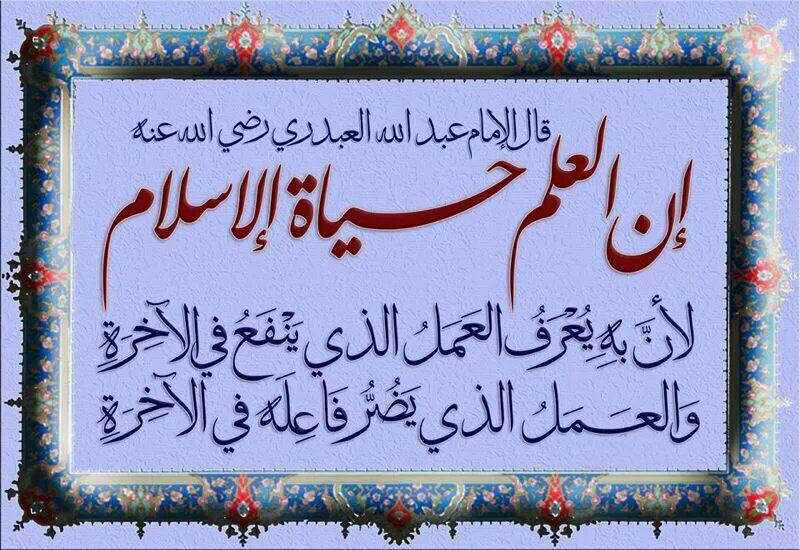 قال الإمام عبد الله العبدري رضي الله عنه
إن العلم حياة الإسلام
لأنَّ بهِ يُعْرَفُ العَمَلُ الذي يَنْفَعُ في الآخِرَةِ
وَالعَمَلُ الذي يَضُرُّ فَاعِلَه في الآخِرَةِ